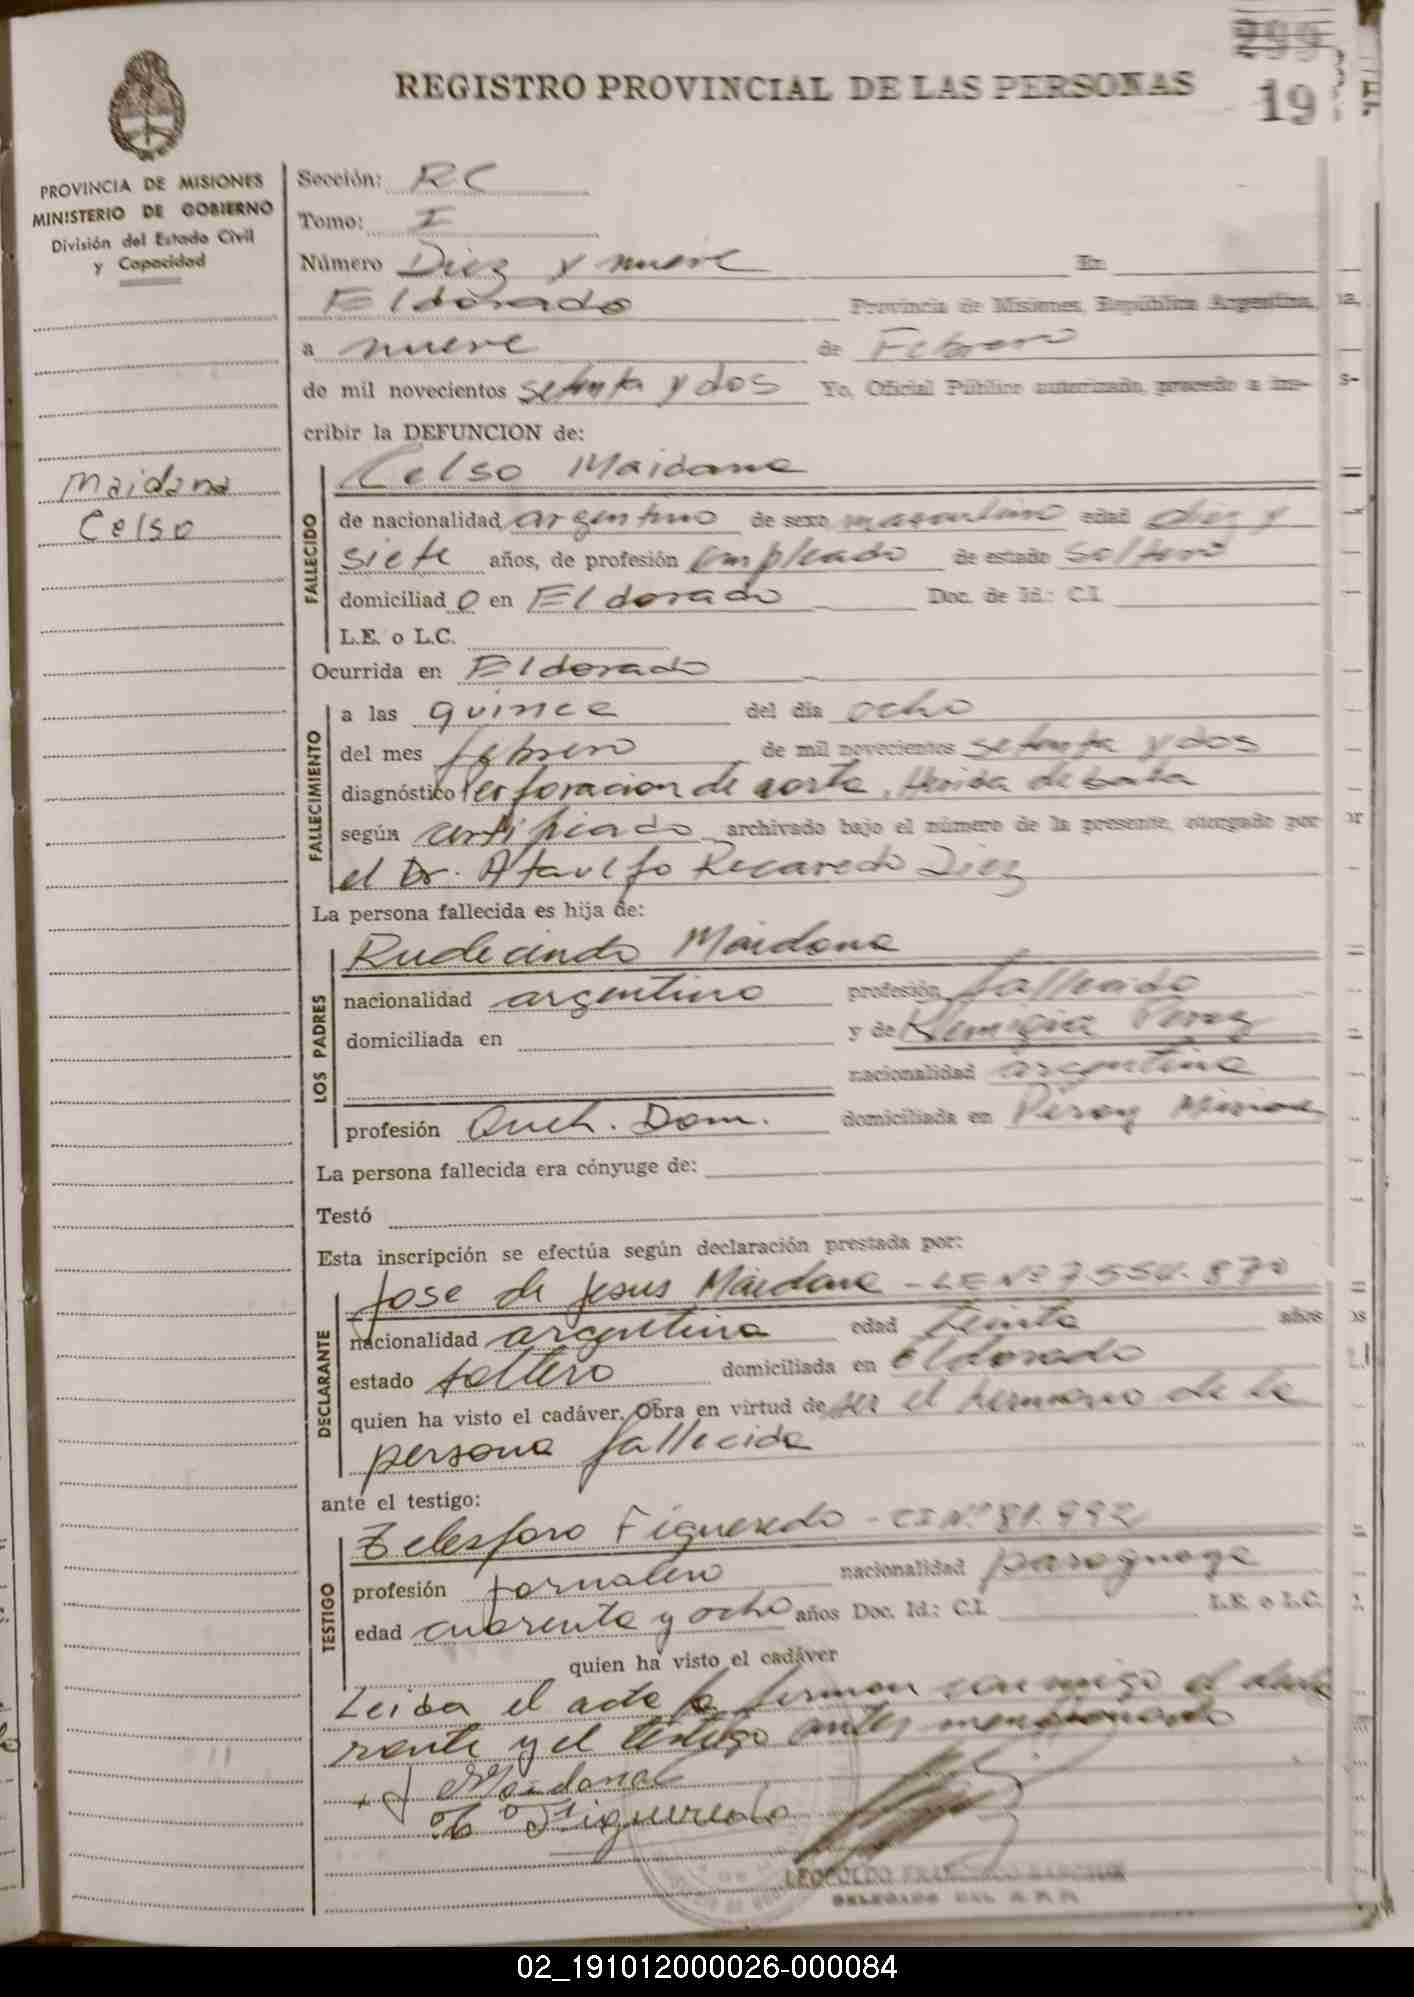 299
19
REGISTRO PROVINCIAL DE LAS PERSONAS
PROVINCIA DE MISIONES
MINISTERIO DE GOBIERNO
División del Estado Civil
y Capacidad
Maidana
Celso
Sección: RC
Tomo: I
Número Diez y nueve En
Eldorado Provincia de Misiones, República Argentina,
a nueve de Febrero
de mil novecientos setenta y dos Yo, Oficial Público autorizado, procedo a ins-
cribir la DEFUNCION de:
FALLECIDO
Celso Maidana
de nacionalidad argentino de sexo masculino edad diez y
siete años, de profesión Empleado de estado Soltero
domiciliad o en Eldorado Doc. de Id.: C.I.
L.E. o L.C.
Ocurrida en Eldorado
FALLECIMIENTO
a las quince del día ocho
del mes febrero de mil novecientos setenta y dos
diagnóstico Perforacion de aorta, Herida de bala
según certificado archivado bajo el número de la presente, otorgado por
el Dr. Ataulfo Recaredo Diez
La persona fallecida es hija de:
LOS PADRES
Rudecindo Maidana
nacionalidad argentino profesión fallecido
domiciliada en y de Remigia Perez
nacionalidad argentina
profesión Queh. Dom. domiciliada en Piray Misiones
La persona fallecida era cónyuge de:
Testó
Esta inscripción se efectúa según declaración prestada por:
DECLARANTE
Jose de Jesus Maidana - LE Nº 7.554.870
nacionalidad argentina edad treinta años
estado soltero domiciliada en Eldorado
quien ha visto el cadáver. Obra en virtud de ser el hermano de la
persona fallecida
ante el testigo:
TESTIGO
Telesforo Figueredo - CI Nº 81.992
profesión jornalero nacionalidad paraguaya
edad cuarenta y ocho años Doc. Id.: C.I. L.E. o L.C.
quien ha visto el cadáver
Leida el acta la firman conmigo el decla
rante y el testigo antes mencionado
J Maidana
T Figueredo
LEOPOLDO FRANCISCO
DELEGADO DEL R.P.P.
02_191012000026-000084